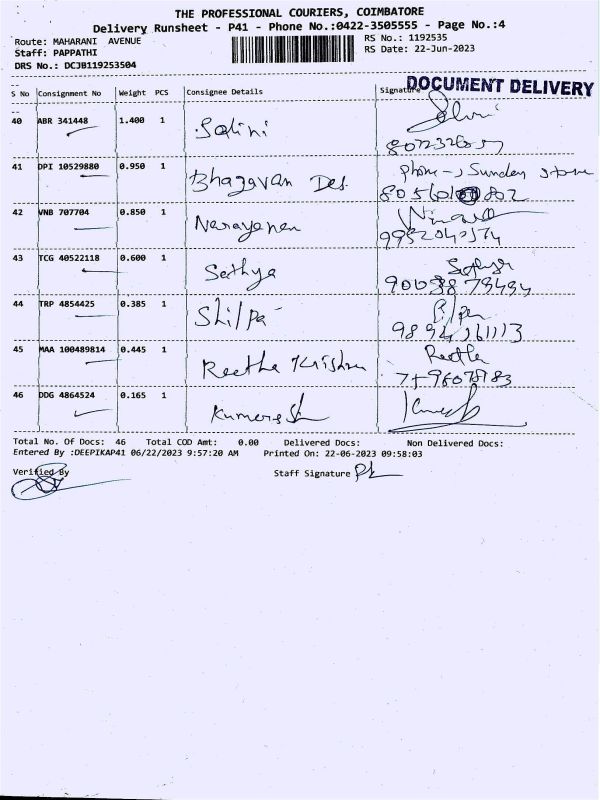 THE PROFESSIONAL COURIERS, COIMBATORE
Delivery Runsheet - P41 - Phone No.:0422-3505555 - Page No.:4
Route: MAHARANI AVENUE RS No.: 1192535
Staff: PAPPATHI RS Date: 22-Jun-2023
DRS No.: DCJB119253504
DOCUMENT DELIVERY
S No Consignment No Weight PCS Consignee Details Signature
40 ABR 341448 1.400 1 Salini
41 DPI 10529880 0.950 1 Bhagavan Des. Phone - Sunday store
42 VNB 707704 0.850 1 Narayanan
43 TCG 40522118 0.600 1 Sathya
44 TRP 4854425 0.385 1 Shilpa
45 MAA 100489814 0.445 1 Reetha Krishna Reetha
46 DDG 4864524 0.165 1 Kumaresh
Total No. Of Docs: 46 Total COD Amt: 0.00 Delivered Docs: Non Delivered Docs:
Entered By :DEEPIKAP41 06/22/2023 9:57:20 AM Printed On: 22-06-2023 09:58:03
Verified By Staff Signature